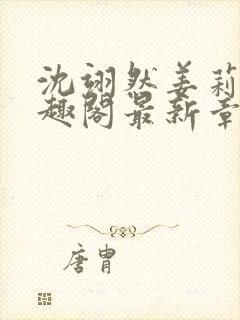 沈翊然姜莉
趣阁最新章
唐胄